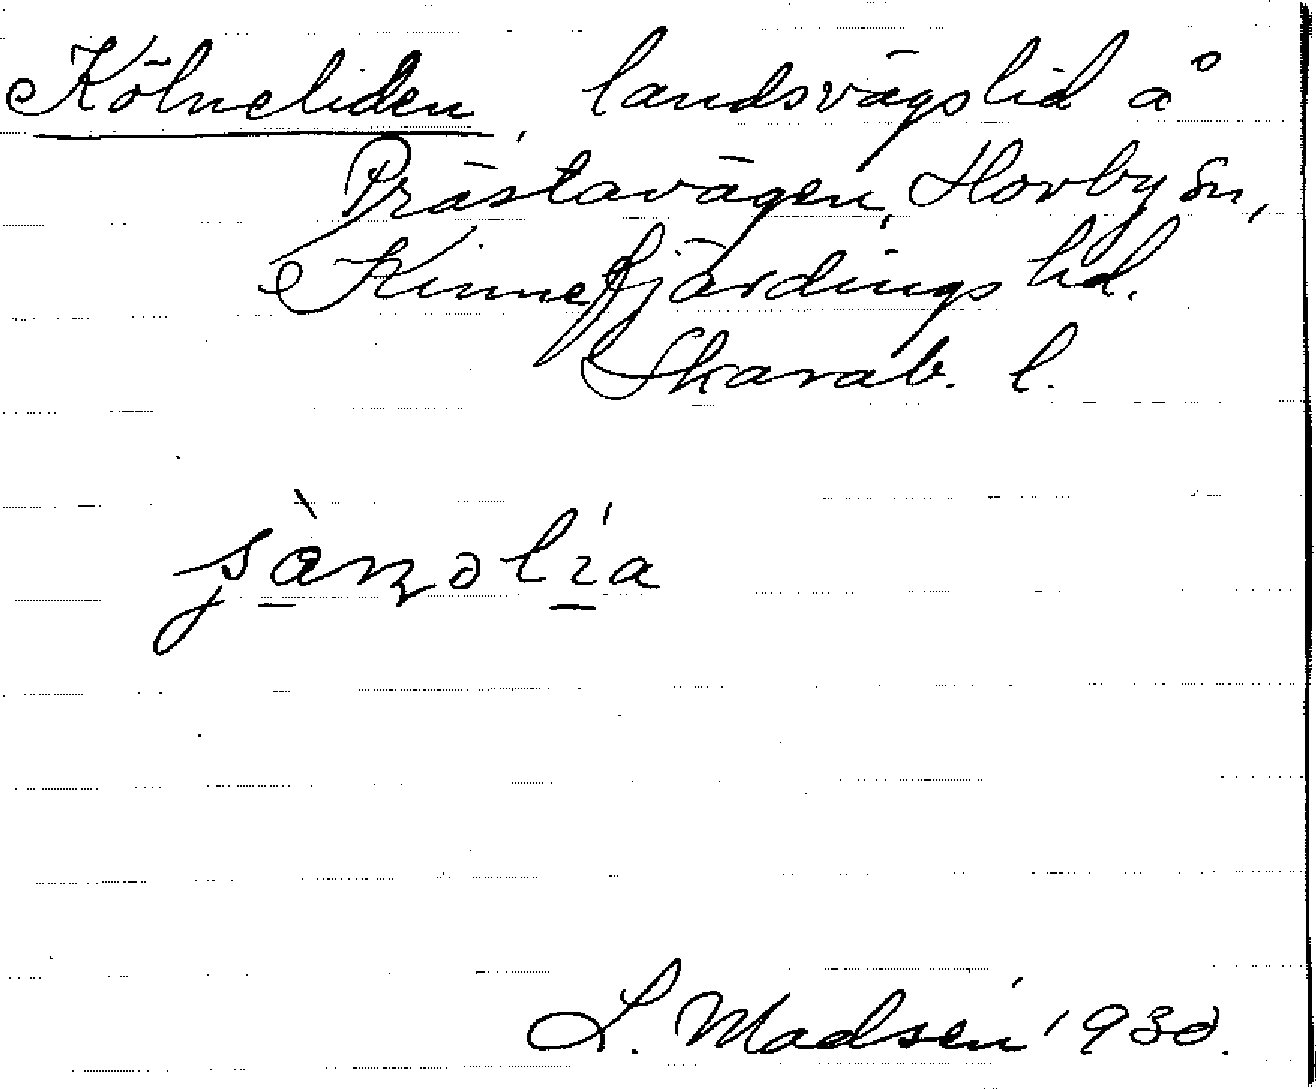 Kölneliden, landsvägslid å
Prästavägen, Hovby sn,
Kinnefjärdings hd.
Skarab. l.
L. Madsén 1930.